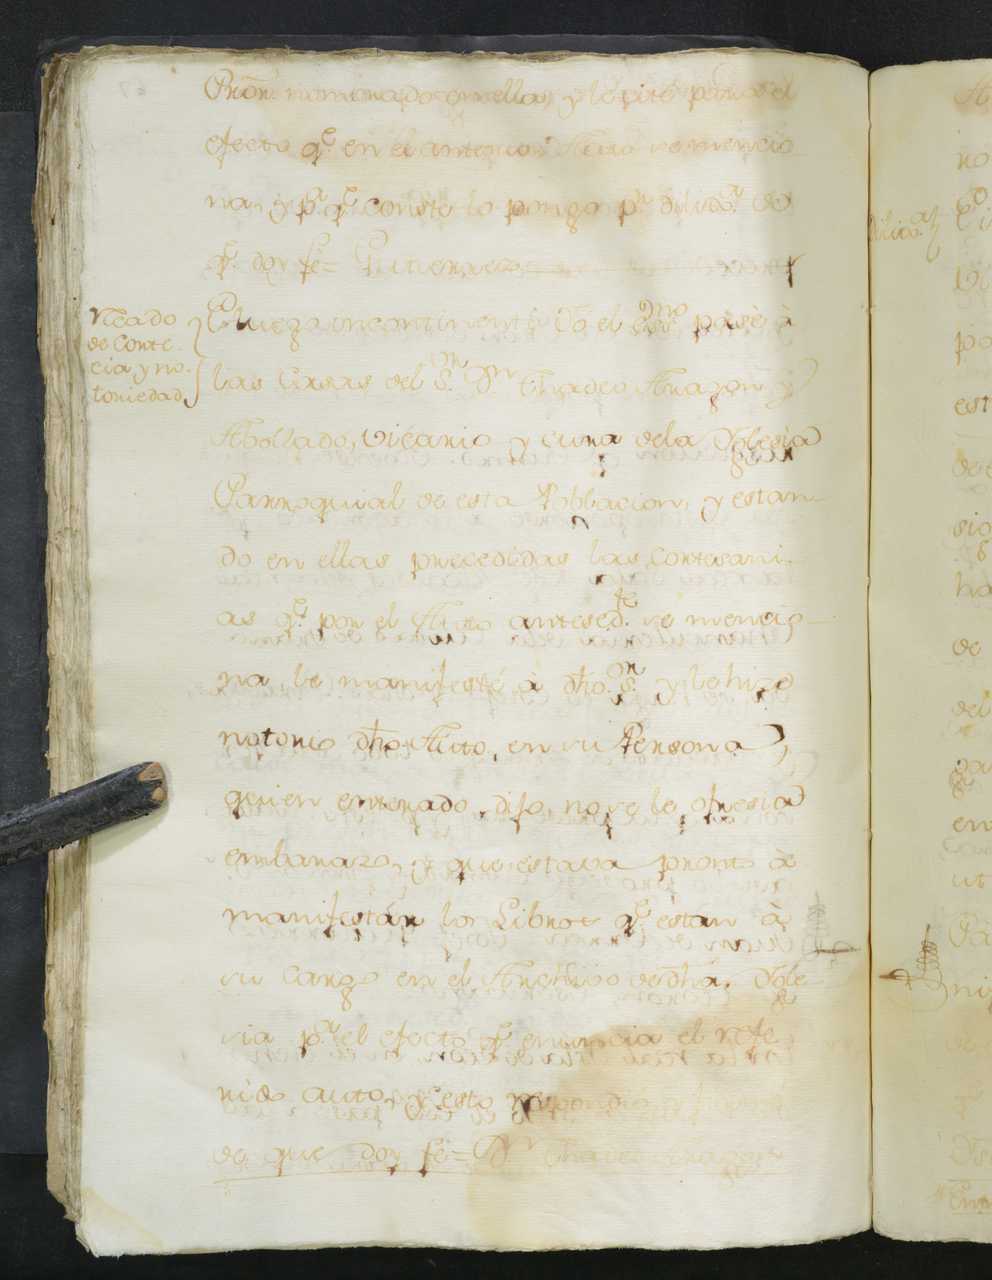 Pror. mencionado en ella, y le cité para el
efecto qe. en el anterior Auto se mencio
na, y pa. qe. conste lo pongo pr. diliga. de
qe. doy fe=
Recado
de Corte
cia y no
toriedad
E luego incontinenti Yo el essno pasè à
las Casas del Sor. Dn Thadeo Aragon y
Abollado, Vicario y cura de la Yglesia
Parroquial de esta Poblacion, y estan
do en ellas precedidas las Cortesani
as qe. por el Auto antesedte. se mencio
na le manifesté à dho. Sor. y le hize
notorio dho Auto, en su Persona,
quien enterado, dijo, no se le ofresia
embarazo, y que estava pronto à
manifestár los Libros qe. éstan à
su Cargo en el Archivo de dha. Ygle
sia pa. el efecto qe. enuncia el refe
rido auto, y esto respondio
de que doy fe= Dn Thadeo Aragon